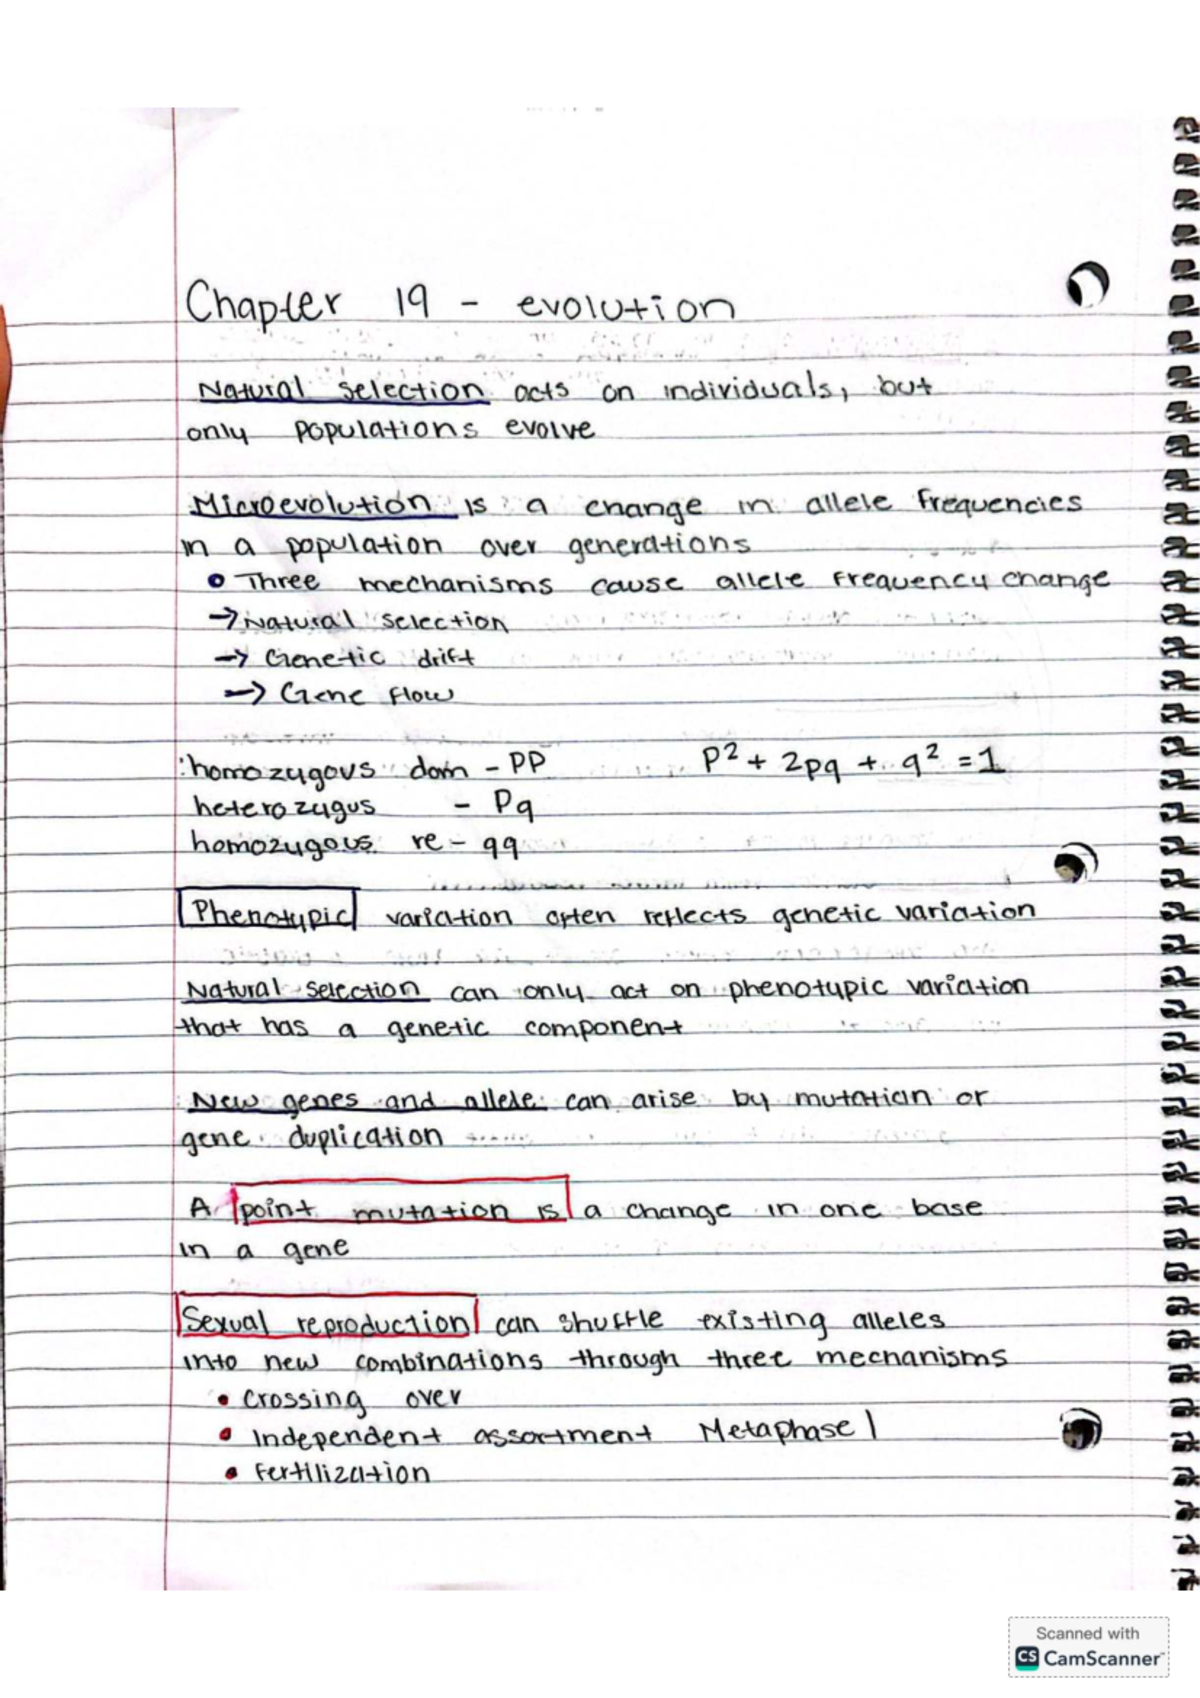 Chapter 19 - evolution
Natural selection acts on individuals, but
only populations evolve
Microevolution is a change in allele frequencies
in a population over generations
Three mechanisms cause allele frequency change
→ Natural selection
→ Genetic drift
→ Gene flow
homozygous dom - PP p² + 2pq + q² = 1
heterozygus - Pq
homozygous re - qq
Phenotypic variation often reflects genetic variation
Natural selection can only act on phenotypic variation
that has a genetic component
New genes and allele can arise by mutation or
gene duplication
A point mutation is a change in one base
in a gene
Sexual reproduction can shuffle existing alleles
into new combinations through three mechanisms
• crossing over
• Independent assortment Metaphase I
• Fertilization
Scanned with
CS CamScanner